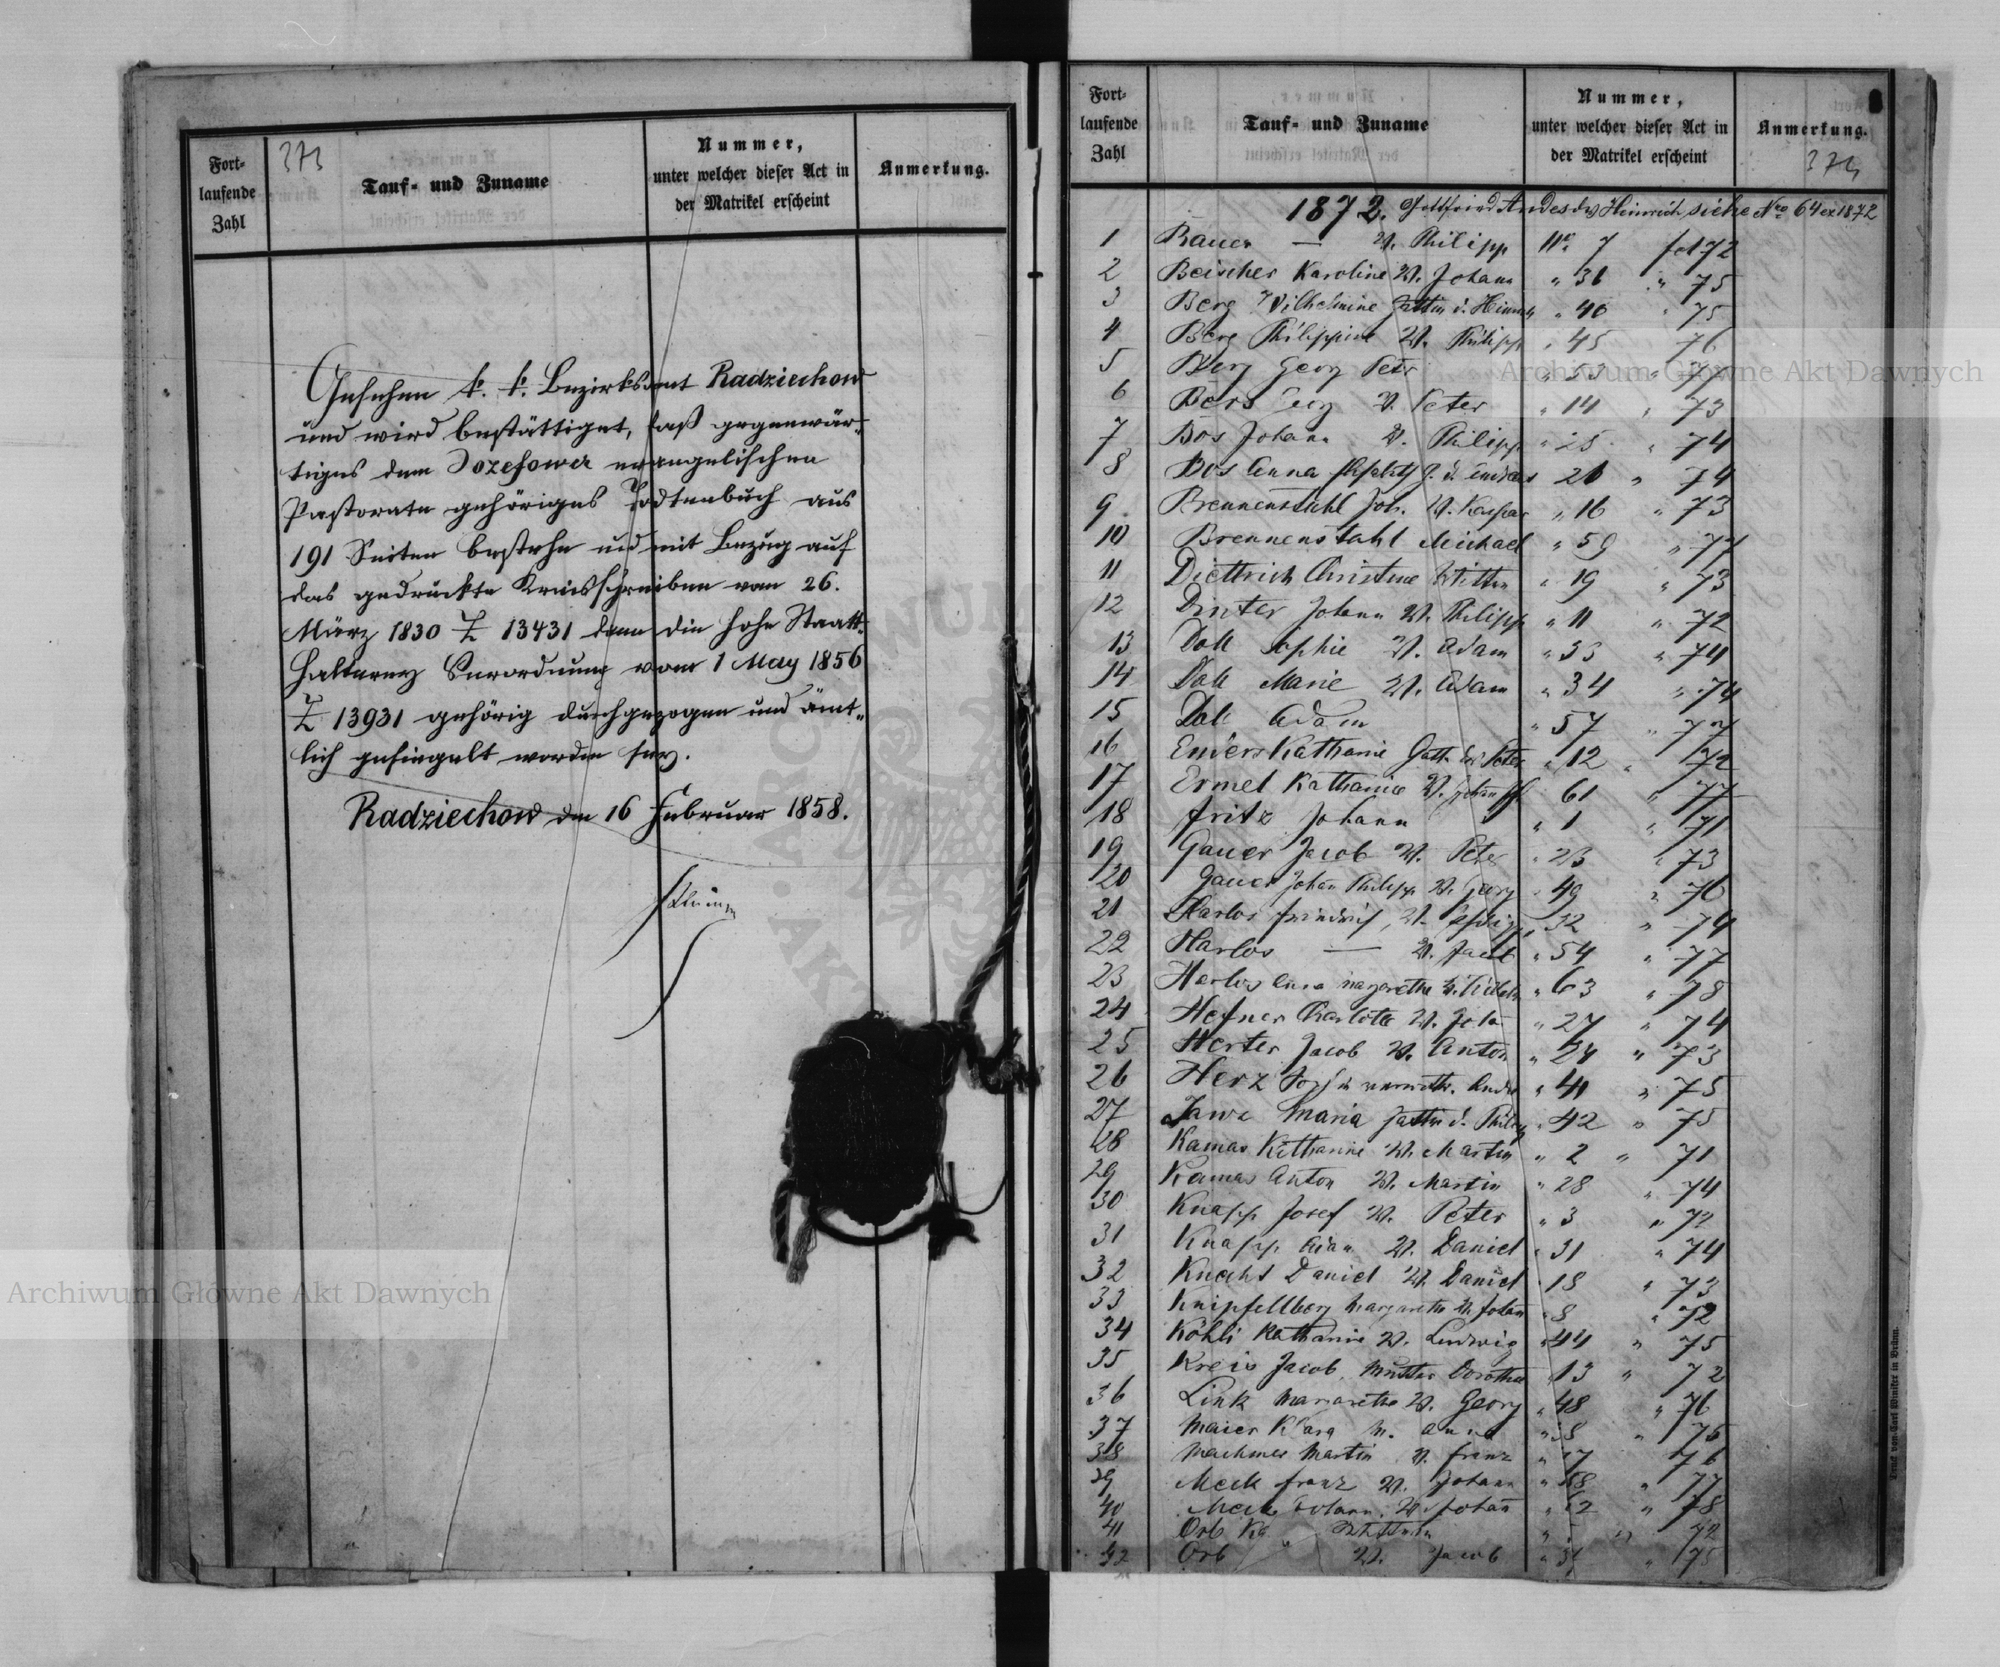 Fort-
laufende
Zahl
373
Tauf- und Zuname
Nummer,
unter welcher dieser Act in
der Matrikel erscheint
Anmerkung.
Gesehen k. k. Bezirksamt Radziechow
und wird bestättiget, daß gegenwär-
tiges dem Jozefower evangelischen
Pastorate gehöriges Todtenbuch aus
191 Seiten bestehe und mit Bezug auf
das gedruckte Kreisschreiben vom 26.
März 1830 Z 13431 dann die hohe Statt-
halterey Verordnung vom 1 May 1856
Z 13931 gehörig durchgezogen und ämt-
lich gesiegelt worden sey.
Radziechow den 16 Februar 1858.
Fort-
laufende
Zahl
Tauf- und Zuname
Nummer,
unter welcher dieser Act in
der Matrikel erscheint
Anmerkung.
374
1872. Gottfried Andes des Heinrich siehe Nro 64 ex 1872
1 Bauer — V. Philipp No 7 fol 72
2 Beischer Karoline V. Johann " 36 " 75
3 Berg Wilhelmine Gattin d. Heinrich " 40 " 75
4 Berg Philippine V. Philipp " 45 76
5 Berg Georg Peter
6 Georg V. Peter " 14 " 73
7 Bos Johann V. Philipp " 25 " 74
8 Bos Anna 26 " 74
9 Brennenstuhl Joh. V. Kaspar " 16 " 73
10 Brennenstahl Michael " 59 " 77
11 Diettrich Christine Wittwe " 19 " 73
12 Dinter Johann V. Philipp " 11 " 72
13 Doll Sophie V. Adam " 33 " 74
14 Doll Marie V. Adam " 34 " 74
15 Doll Adam " 57 " 77
16 Enders Katharine Gatt. des Peter " 12 " 72
17 Ermel Katharine V. Johann 61 " 77
18 Fritz Johann " 1 " 71
19 Gauer Jacob V. Peter " 23 " 73
20 Gauer Johan Philipp V. Georg " 49 " 76
21 Harlos Friedrich, V. Philipp " 32 " 74
22 Harlos — V. Jacob " 54 " 77
23 Harlos Anna Margaretha " 63 " 78
24 Hefner Charlotte V. Joha " 27 " 74
25 Herter Jacob V. Anton " 24 " 73
26 Herz " 41 " 75
27 Jawe Maria Gattin d. Philipp " 42 " 75
28 Kamas Katharine V. Martin " 2 " 71
29 Kamas Anton V. Martin " 28 " 74
30 Knapp Josef V. Peter " 3 " 72
31 Knapp Adam V. Daniel " 31 " 74
32 Knecht Daniel V. Daniel " 18 " 73
33 Knipfellberg Margaretha V. Johan " 8 " 72
34 Köhli Katharine V. Ludwig " 44 " 75
35 Kreis Jacob, Mutter Dorothea " 13 " 72
36 Link Margaretha V. Georg " 48 " 76
37 Maier Klara M. Anna
38 Machmer Martin V. Franz 76
39 Meck Franz V. Johann 77
40 Meck Johann V. Johan " 78
41 Orb 72
42 Orb V. Jacob
Druck von Carl Winiker in Brünn.
Archiwum Główne Akt Dawnych
Archiwum Główne Akt Dawnych